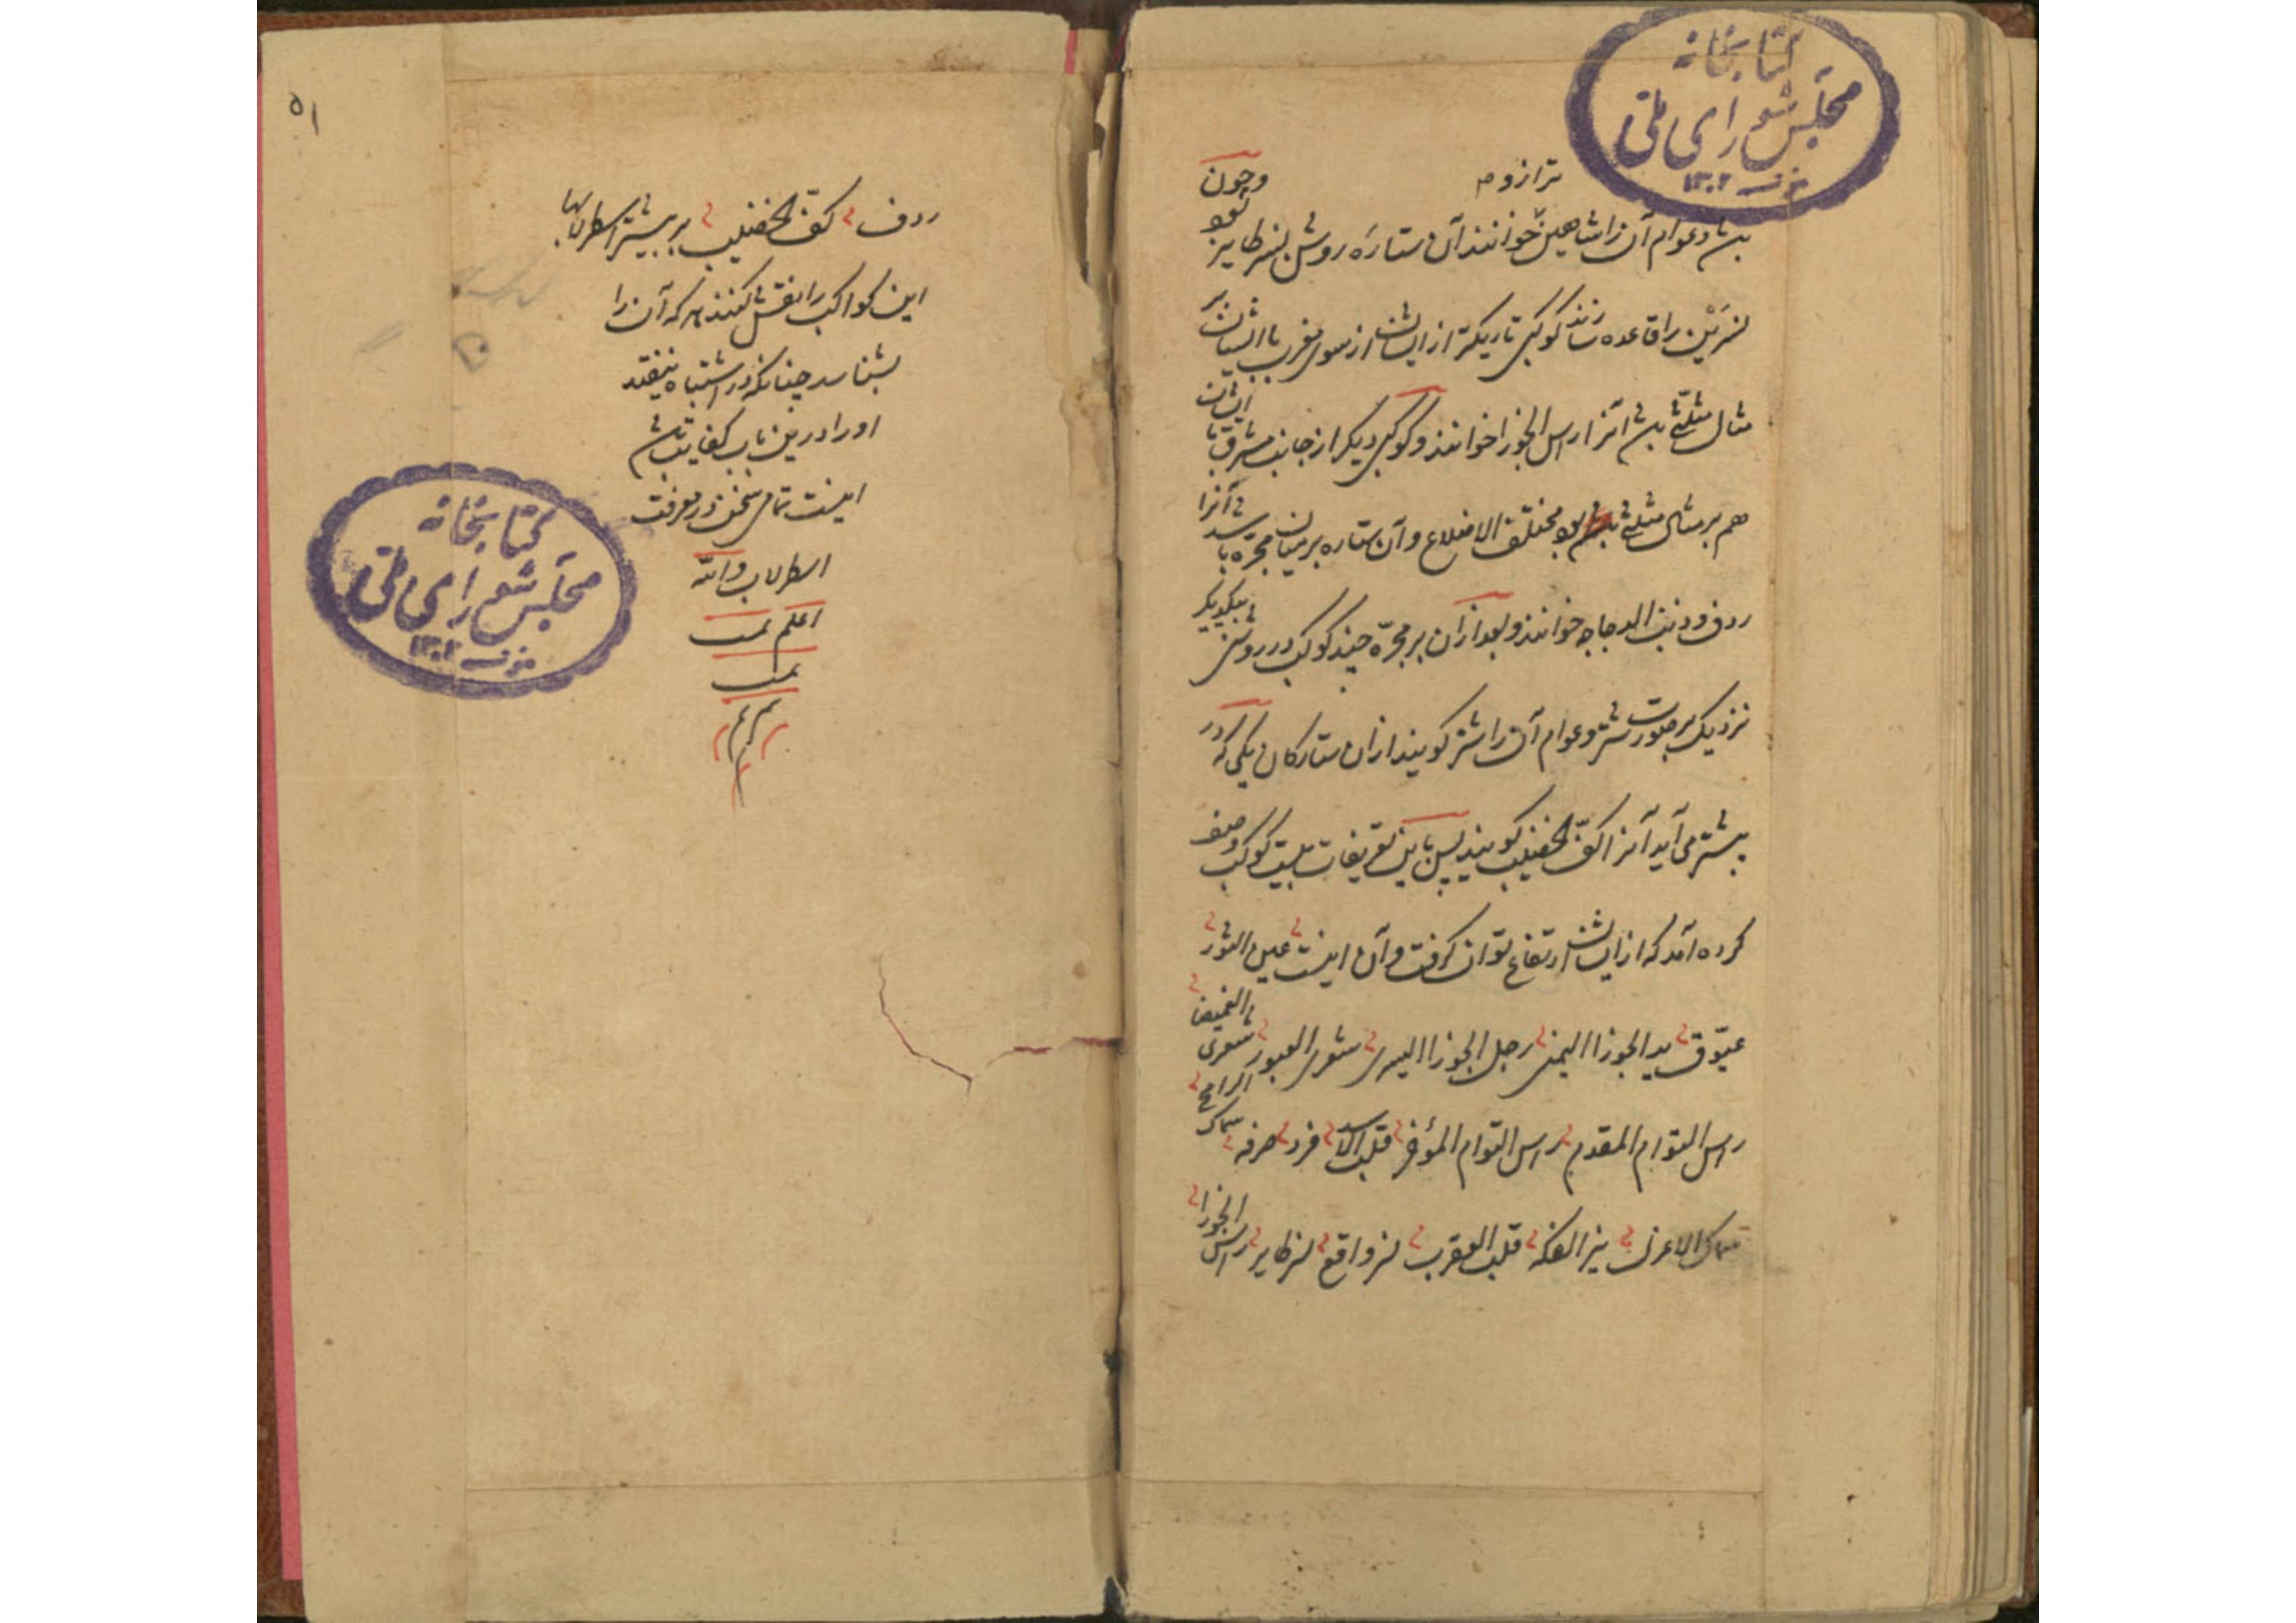 کتابخانه
مجلس شورای ملی
۱۳۰۲
ترازوم
بدن و عوام آن را شاهین خوانند آن ستارهٔ روشن نسر طایر بود وچون
نسرین را قاعده سازند کوکبی تاریکتر از ایشان از سوی مغرب با ایشان بر
مثال مثلثی بدن آنرا راس الجوزا خوانند و کوکبی دیگر از جانب مشرق با ایشان
هم بر مثال مثلثی بود مختلف الاضلاع و آن ستاره بر میان مجره باشد آنرا
ردف و ذنب الدجاجه خوانند و بعد ازان بر مجره چند کوکب در روشنی بیکدیگر
نزدیک بر صورت شتر و عوام آن را شتر کویند ازان ستارکان یکی که در
پیشتر می آید آنرا کف الخضیب کویند پس باین تعریفات بیست کوکب وصف
کرده آمد که ازایشان ارتفاع توان کرفت و آن اینست عین الثور
عیوق ید الجوزا الیمنی رجل الجوزا الیسری شعری العبور شعری الغمیصا
راس التوام المقدم راس التوام المؤخر قلب الاسد فرد صرفه سماک الرامح
سماک الاعزل نیر الفکه قلب العقرب نسر واقع نسر طایر راس الجوزا
۵۱
ردف کف الخضیب بر بیشتر اسطرلابها
این کواکب را نقش کنند هر که آن را
بشناسد چنانکه در اشتباه نیفتد
او را درین باب کفایت باشد
اینست تمامی سخن در معرفت
اسطرلاب والله
اعلم تمت
تمت
م م م
کتابخانه
مجلس شورای ملی
۱۳۰۲